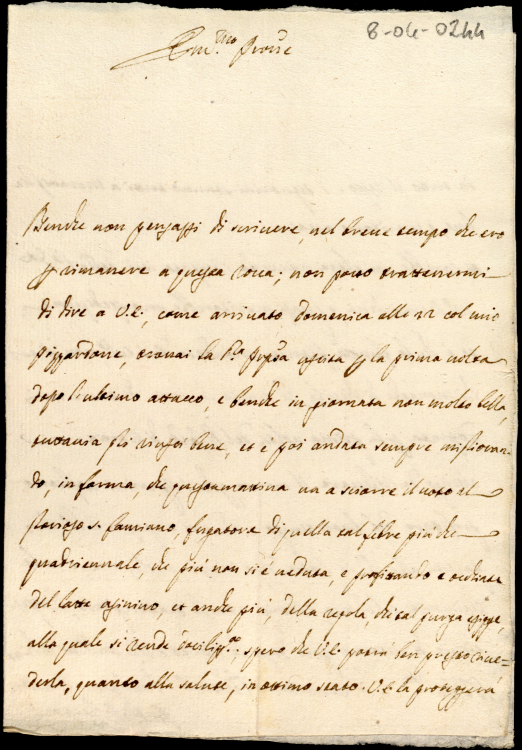 8-04-0244
Em.mo Prone
Benche non pensassi di scrivere, nel breve tempo che ero
p rimanere a questa rocca; non posso trattenermi
di dire a V.E., come arrivato domenica alle 22 col mio
Pizzardone, trovai la P.a uscita p la prima volta
dopo l'ultimo attacco, e benche in giornata non molto bella,
tuttavia gli riuscì bene, et è poi andata sempre miglioran-
do, in forma, che questa mattina va a sciorre il voto al
glorioso s. famiano, fugatore di quella tal febre più che
quadriennale, che più non si è veduta, e profittando
del latte asinino, et anche più, della regola, che tal purga esigge,
alla quale si rende docilis.ma, spero che V.E. potrà ben presto rive-
derla, quanto alla salute, in ottimo stato. V.E. la proteggerà